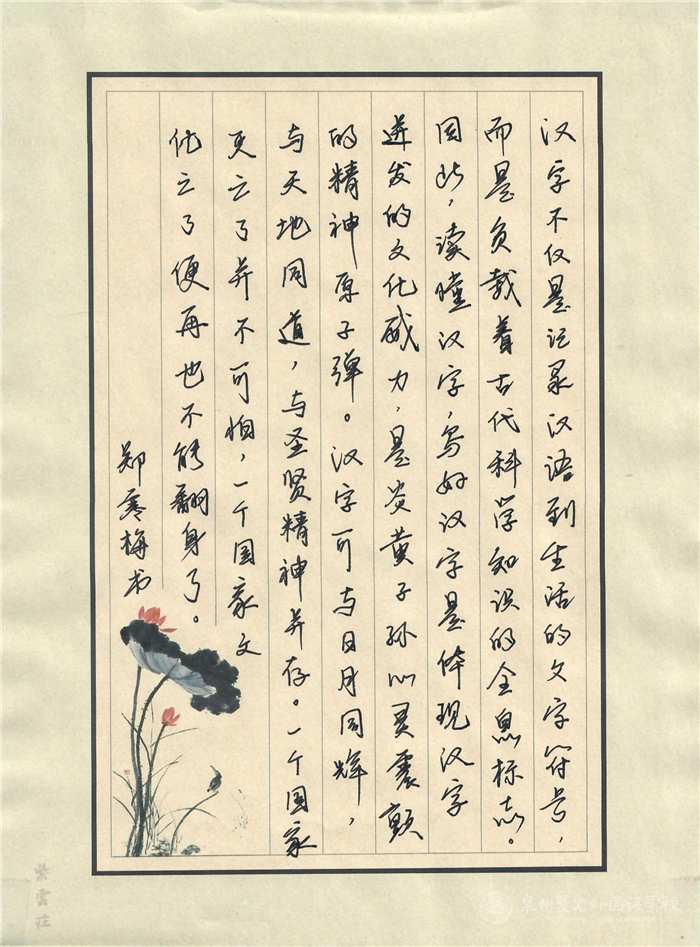 汉字不仅是记录汉语到生活的文字符号，
而是负载着古代科学知识的全息标志。
因此，读懂汉字，写好汉字是体现汉字
迸发的文化威力，是炎黄子孙心灵震颤
的精神原子弹。汉字可与日月同辉，
与天地同道，与圣贤精神并存。一个国家
灭亡了并不可怕，一个国家文
化亡了便再也不能翻身了。
郑寒梅书
紫雲莊
泉州聚龙外国语学校